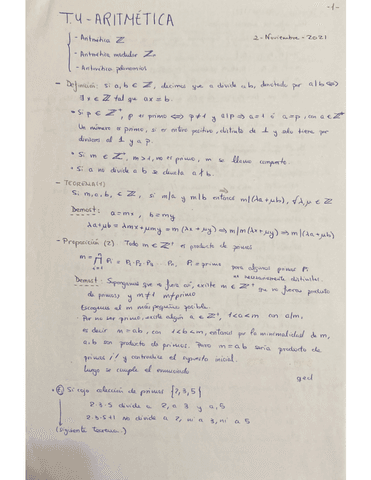 -1-
T.4-ARITMÉTICA
- Aritmética ℤ
2-Noviembre-2021
- Aritmética modular ℤ
- Aritmética polinomios
- Definición: si a, b ∈ ℤ, decimos que a divide a b, denotado por a|b ⇔
∃ x ∈ ℤ tal que ax = b.
• Si p ∈ ℤ⁺, p es primo ⇔ p ≠ 1 y a|p ⇒ a = 1 ó a = p, con a ∈ ℤ⁺
Un número es primo, si es entero positivo, distinto de 1 y solo tiene por
divisores al 1 y a p.
• Si m ∈ ℤ, m > 1, no es primo, m se llama compuesto.
• Si a no divide a b se denota a ∤ b.
- TEOREMA(1)
Si m, a, b ∈ ℤ, si m|a y m|b entonces m|(λa + μb), ∀ λ, μ ∈ ℤ
Demost: a = mx, b = my
λa + μb = λmx + μmy = m(λx + μy) ⇒ m|m(λx + μy) ⇒ m|(λa + μb)
- Proposición (2). Todo m ∈ ℤ⁺ es producto de primos
m = ∏ Pᵢ = P₁·P₂·P₃ ... Pₙ, Pᵢ = primo para algunos primos Pᵢ
no necesariamente distintos.
Demost: Supongamos que no fuera así, existe m ∈ ℤ⁺ que no fuera producto
de primos y m ≠ 1 m ≠ primo
Escogemos el m más pequeño posible.
Por no ser primo, existe algún a ∈ ℤ⁺, 1<a<m con a|m,
es decir m = ab, con 1<b<m, entonces por la minimalidad de m,
a, b son producto de primos. Pero m = ab sería producto de
primos // y contradice el supuesto inicial.
Luego se cumple el enunciado
q.e.d
Si cojo colección de primos {2, 3, 5}
2·3·5 divide a 2, a 3 y a 5
2·3·5+1 no divide a 2, ni a 3, ni a 5
(siguiente teorema.)